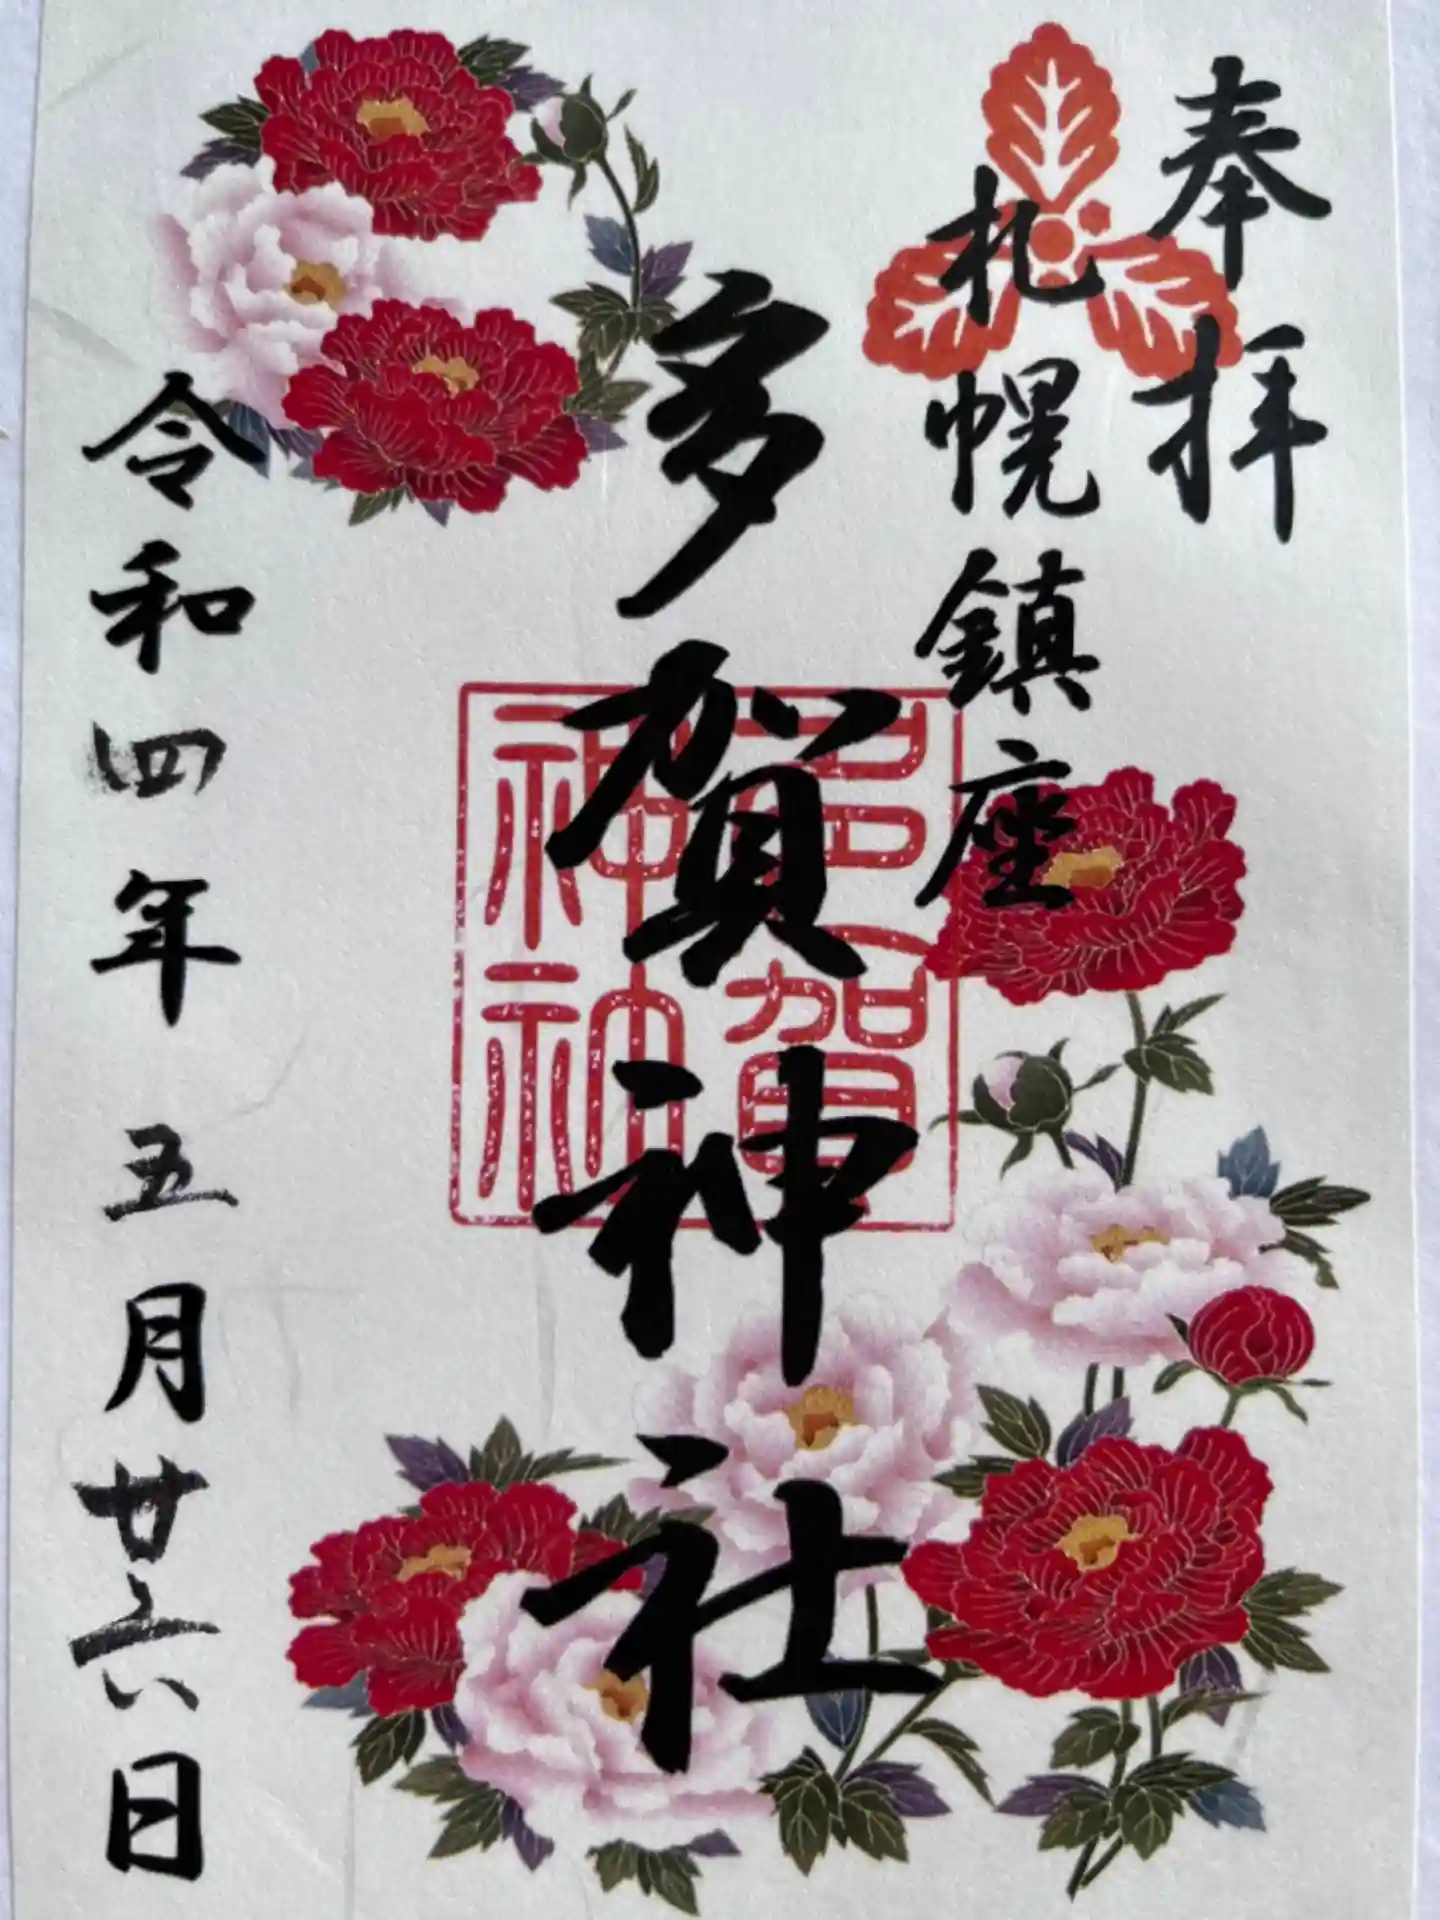 奉拝
札幌鎮座
多賀神社
多賀神社
令和四年五月廿六日